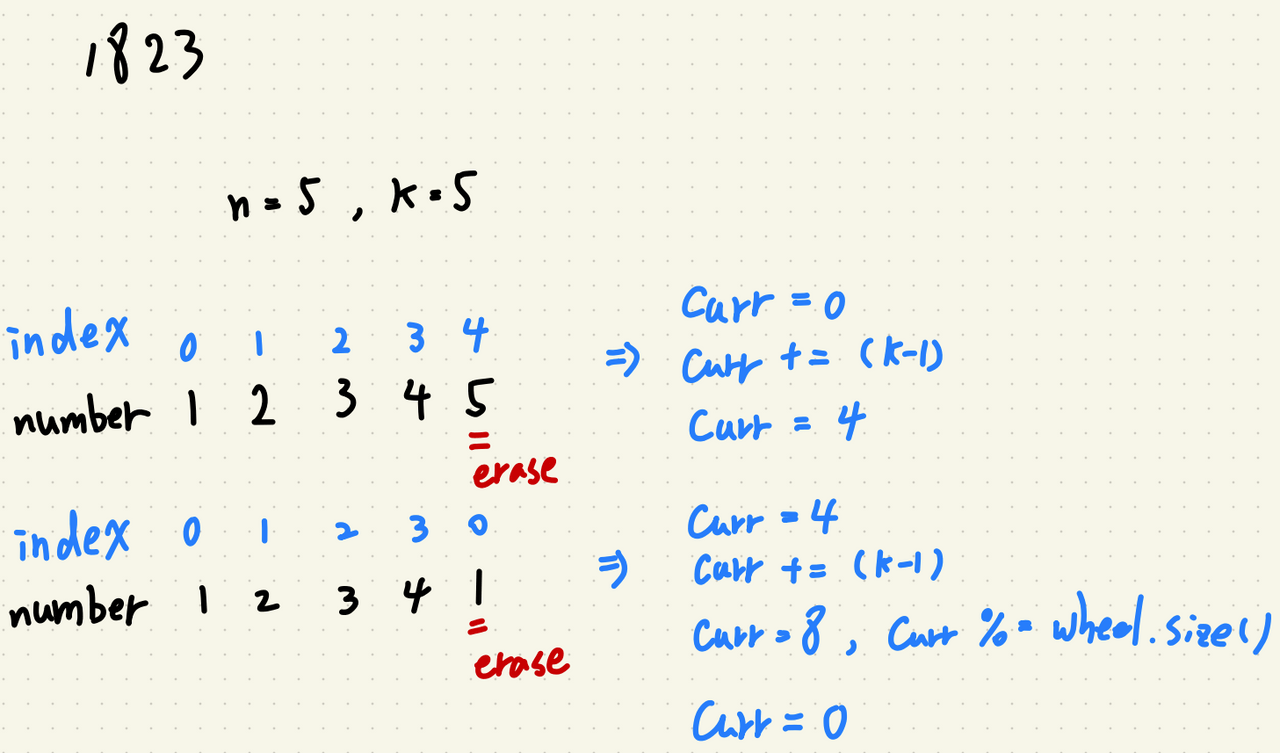 1823
n = 5 , k = 5
index 0 1 2 3 4
number 1 2 3 4 5
erase
=> Curr = 0
Curr += (k-1)
Curr = 4
index 0 1 2 3 0
number 1 2 3 4 1
erase
=> Curr = 4
Curr += (k-1)
Curr = 8 , Curr %= wheel.size()
Curr = 0